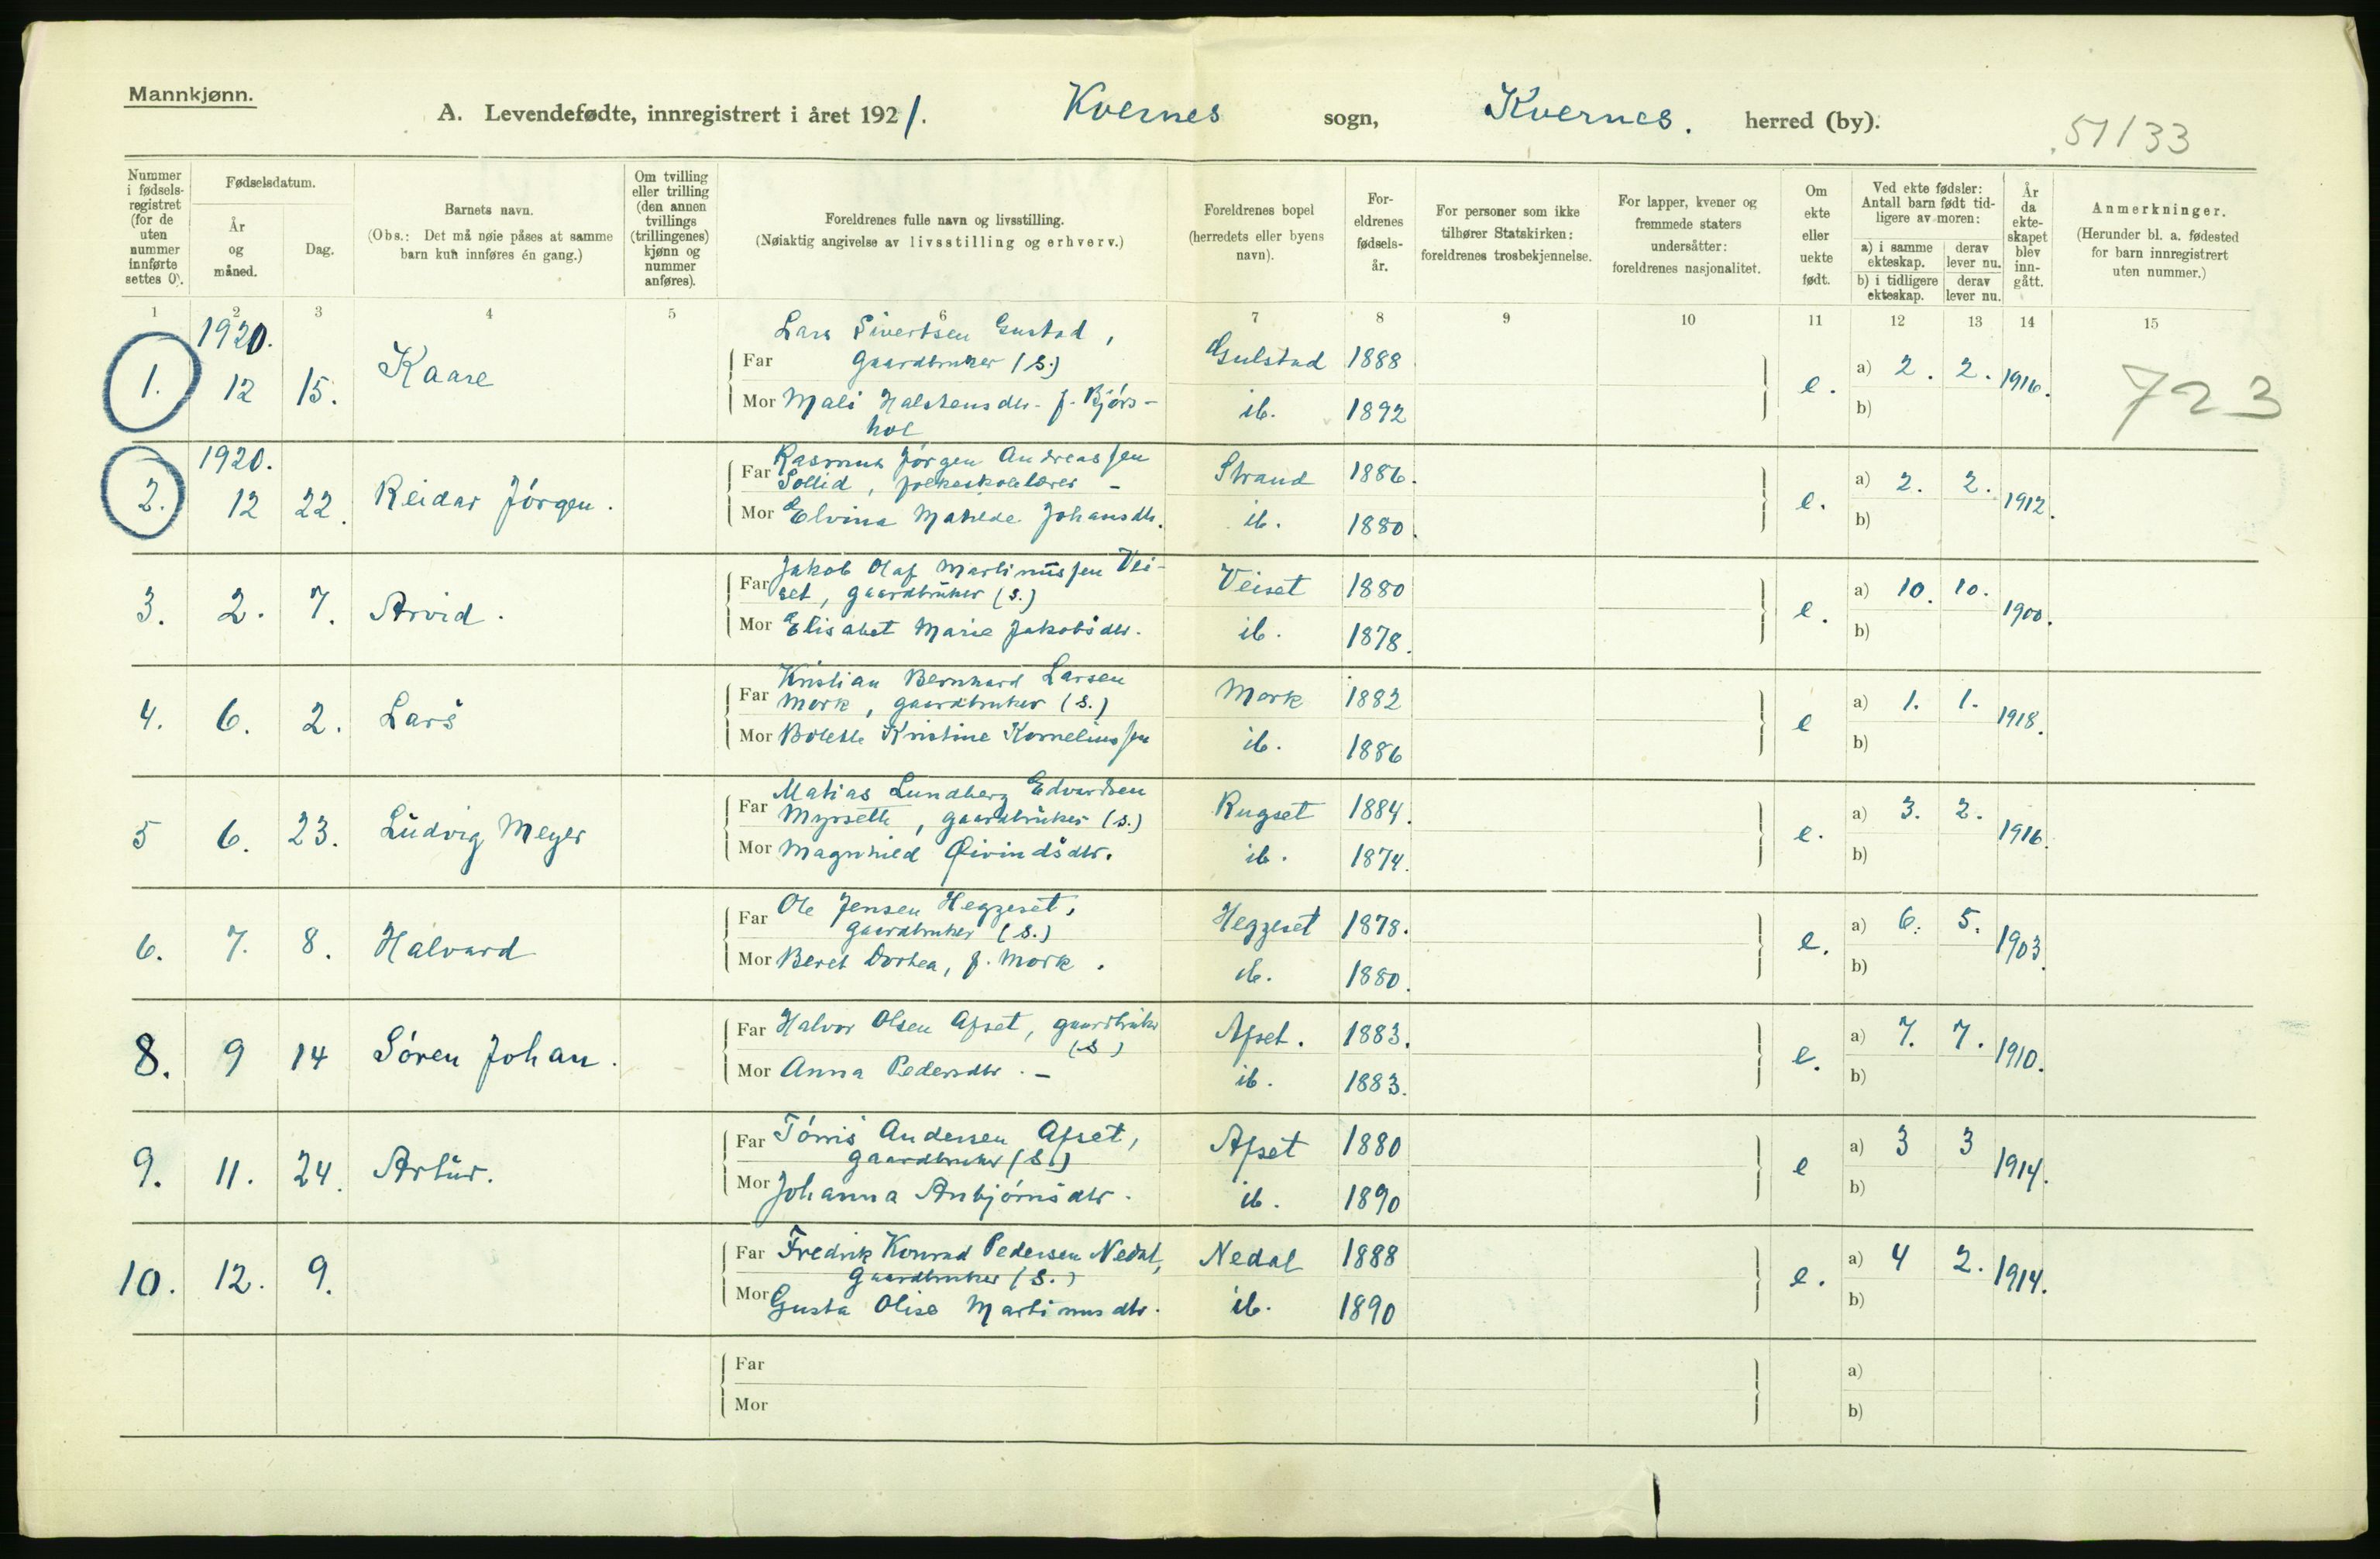 Mannkjønn.
A. Levendefødte, innregistrert i året 1921. Kvernes sogn, Kvernes. herred (by).
51/33
Nummer i fødsels-registret (for de uten nummer innførte settes 0).
Fødselsdatum.
År og måned.
Dag.
Barnets navn.
(Obs.: Det må nøie påses at samme barn kun innføres én gang.)
Om tvilling eller trilling (den annen tvillings (trillingenes) kjønn og nummer anføres).
Foreldrenes fulle navn og livsstilling.
(Nøiaktig angivelse av livsstilling og erhverv.)
Foreldrenes bopel (herredets eller byens navn).
For-eldrenes fødsels-år.
For personer som ikke tilhører Statskirken: foreldrenes trosbekjennelse.
For lapper, kvener og fremmede staters undersåtter: foreldrenes nasjonalitet.
Om ekte eller uekte født.
Ved ekte fødsler: Antall barn født tid-ligere av moren:
a) i samme ekteskap.
derav lever nu.
b) i tidligere ekteskap.
derav lever nu.
År da ekte-skapet blev inn-gått.
Anmerkninger.
(Herunder bl. a. fødested for barn innregistrert uten nummer.)
1 2 3 4 5 6 7 8 9 10 11 12 13 14 15
1920.
1. 12 15. Kaare
Lars Sivertsen Gustad,
Far Gaardbruker (S.) Gulstad 1888
Mor Mali Halstensdtr. f. Bjørs-
hol ib. 1892
e. a) 2. 2. 1916.
b)
723
1920.
2. 12 22. Reidar Jørgen.
Rasmus Jørgen Andreassen
Far Sollid, folkeskolelærer - Strand 1886.
Mor Elvina Matilde Johansdtr. ib. 1880.
e. a) 2. 2. 1912.
b)
3. 2. 7. Arvid.
Jakob Olaf Martinussen Vei-
Far set, gaardbruker (S.) Veiset 1880
Mor Elisabet Marie Jakobsdtr. ib. 1878.
e. a) 10. 10. 1900.
b)
4. 6. 2. Lars
Kristian Bernhard Larsen
Far Mork, gaardbruker (S.) Mork 1882
Mor Bolette Kristine Korneliussen ib. 1886
e a) 1. 1. 1918.
b)
5 6. 23. Ludvig Meyer
Matias Lundberg Edvardsen
Far Myrsette, gaardbruker (S.) Rugset 1884.
Mor Magnhild Øivindsdtr. ib. 1874.
e. a) 3. 2. 1916.
b)
6. 7. 8. Halvard
Far Ole Jensen Heggeset,
Gaardbruker (S.) Heggeset 1878.
Mor Beret Dortea, f. Mork. ib. 1880.
e. a) 6. 5. 1903.
b)
8. 9 14 Søren Johan.
Far Halvor Olsen Afset, gaardbruker
(S) Afset. 1883.
Mor Anna Pedersdtr. - ib. 1883.
e. a) 7. 7. 1910.
b)
9. 11. 24. Artur.
Far Tørris Andersen Afset,
gaardbruker (S.) Afset 1880
Mor Johanna Anbjørnsdtr. ib. 1890
e a) 3 3 1914.
b)
10. 12. 9.
Far Fredrik Konrad Pedersen Nedal,
Gaardbruker (S.) Nedal 1888
Mor Gusta Olise Martinusdtr. ib. 1890
e. a) 4 2. 1914.
b)
Far a)
Mor b)